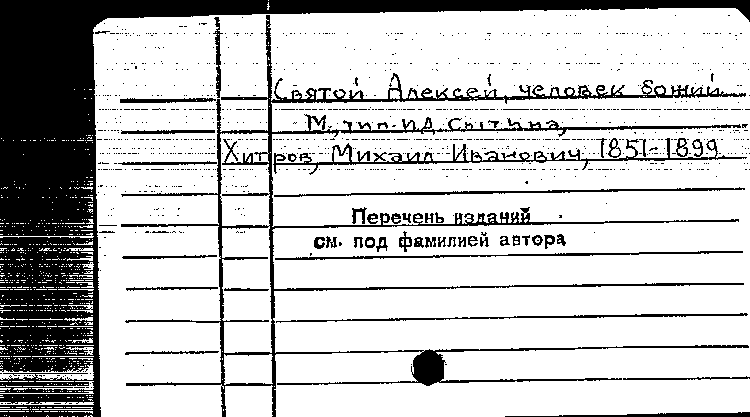 Святой Алексей, человек божий.
М., тип. И.Д. Сытина,
Хитров, Михаил Иванович, 1851-1899.
Перечень изданий
см. под фамилией автора